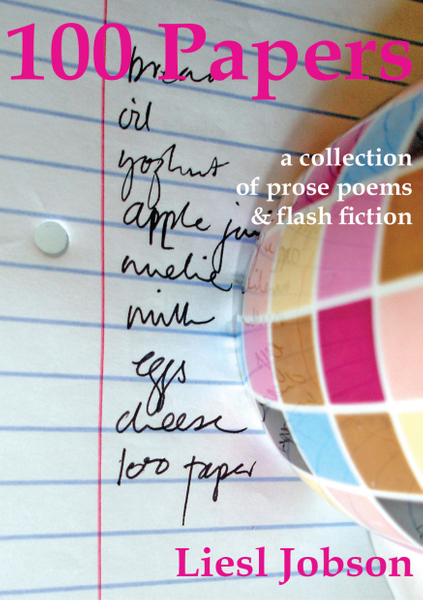 100 Papers
bread
oil
yoghurt
a collection
of prose poems
& flash fiction
apple
milk
eggs
cheese
100 paper
Liesl Jobson